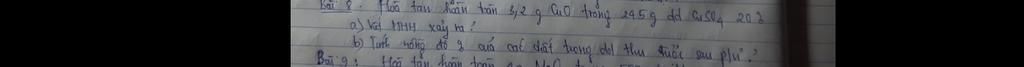 Bài 8: Hoà tan hoàn toàn 3,2 g CuO trong 245 g dd CuSO4 20%
a) Viết PTHH xảy ra?
b) Tính nồng độ % của các chất trong dd thu được sau p/ư?
Bài 9: Hoà tan hoàn toàn